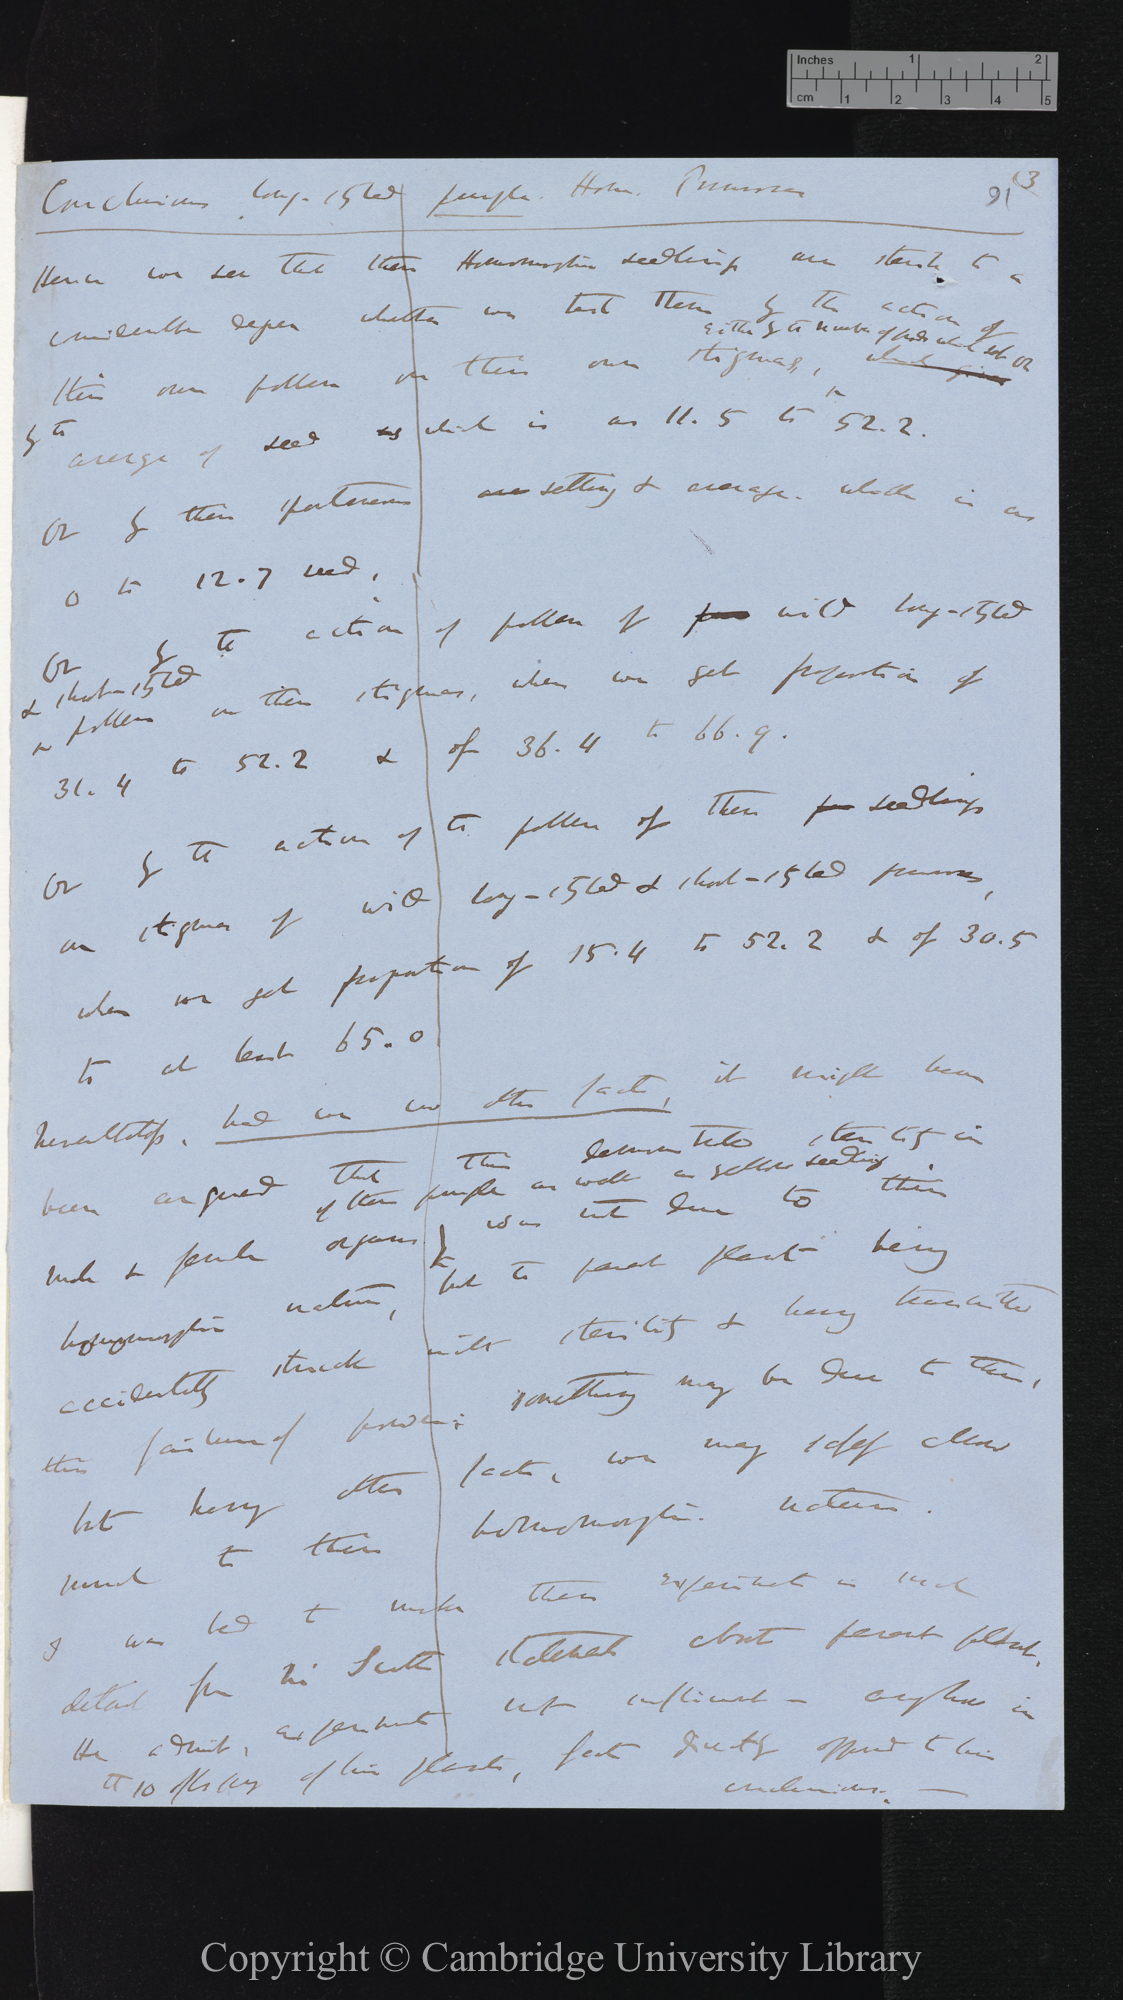 Inches 1 2
cm 1 2 3 4 5
Conclusions long-styled purple. Hom. Primroses
91 3
Hence we see that these Homomorphic seedlings are sterile to a
considerable degree whether we test them by the action of
either by the number of pods which set or
their own pollen on their own stigmas, which gives
by the average of seed as which is as 11.5 to 52.2.
Or by their spontaneous are setting & average. which is as
0 to 12.7 seed,
Or by the action of pollen of wild long-styled
& short-styled
pollen on their stigmas, when we get proportion of
31.4 to 52.2 & of 36.4 to 66.9.
Or by the action of the pollen of these seedlings
on stigmas of wild long-styled & short-styled primroses,
when we get proportion of 15.4 to 52.2 & of 30.5
to at least 65.0
Nevertheless, had we no other facts, it might have
been argued that this sterility in
of these purple as well as yellow seedlings
male & female organs was not due to their
homomorphic nature, but to parent plant being
accidentally struck with sterility & having transmitted
this failure of power; something may be due to this,
but having other facts, we may safely allow
much to their homomorphic nature.
I was led to make these experiments in such
detail from Mr Scott's statements about parent plant.
He admits, experiments not sufficient – anyhow in
the 10 offspring of his plants, facts directly opposed to his
conclusions. —
Copyright © Cambridge University Library